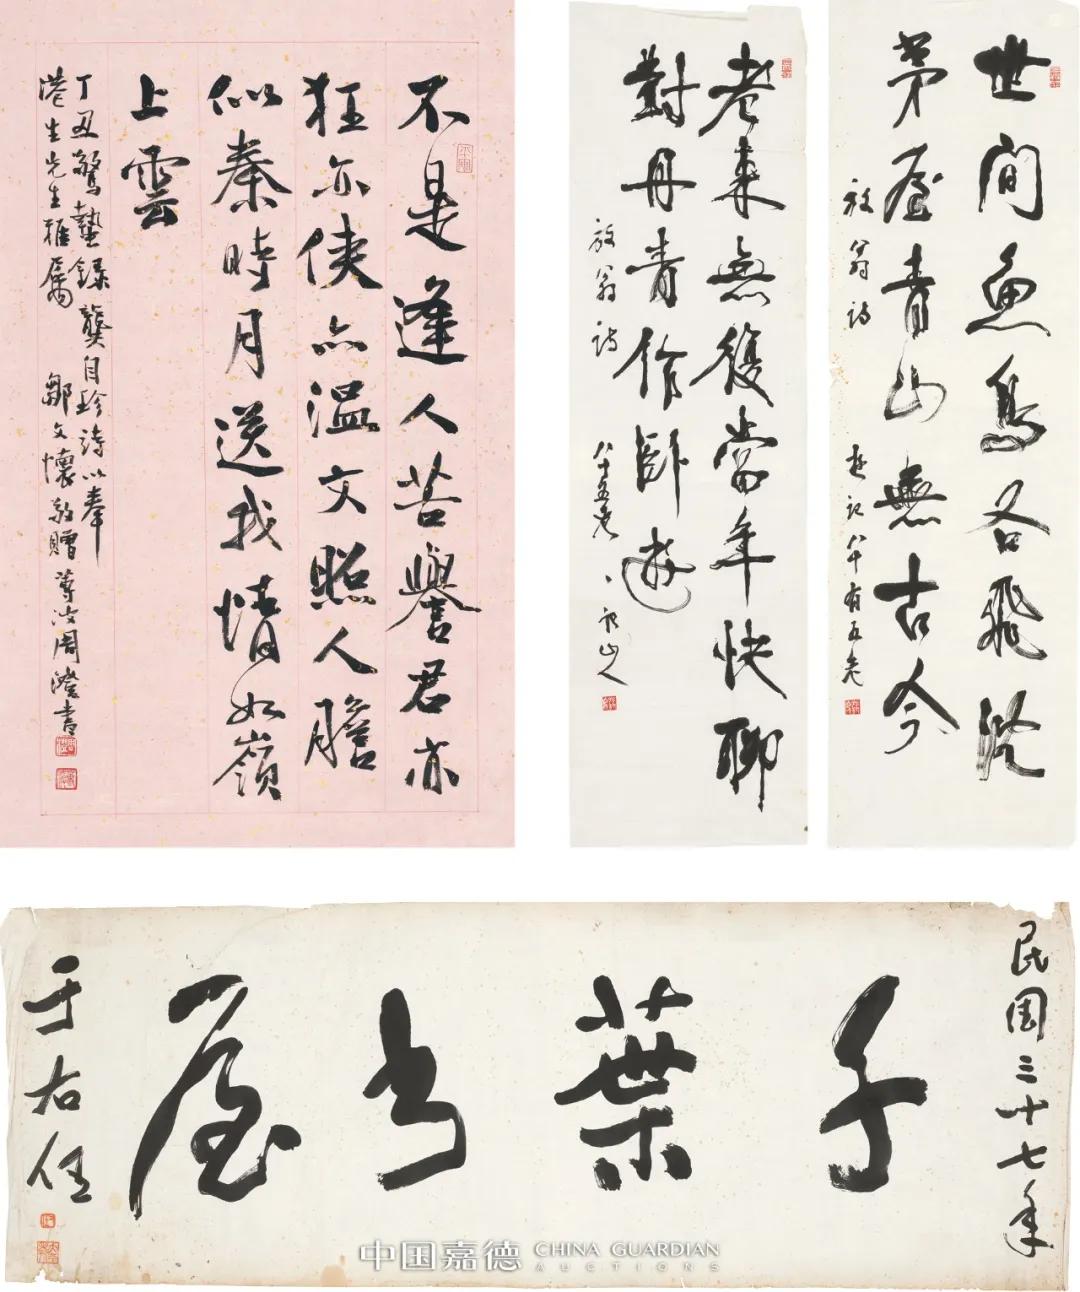 不是逢人苦譽君亦
狂亦俠亦溫文照人膽
似秦時月送我情如嶺
上雲
丁丑驚蟄錄龔自珍詩以奉
港生先生雅屬 鄒文懷敬贈 周澄書
世間魚鳥各飛沉
茅屋青山無古今
放翁詩
八十有五叟
老來無復當年快聊
對丹青作臥遊
放翁詩 八十五叟
民国三十七年
千葉书屋
于右任
中国嘉德 CHINA GUARDIAN
AUCTIONS